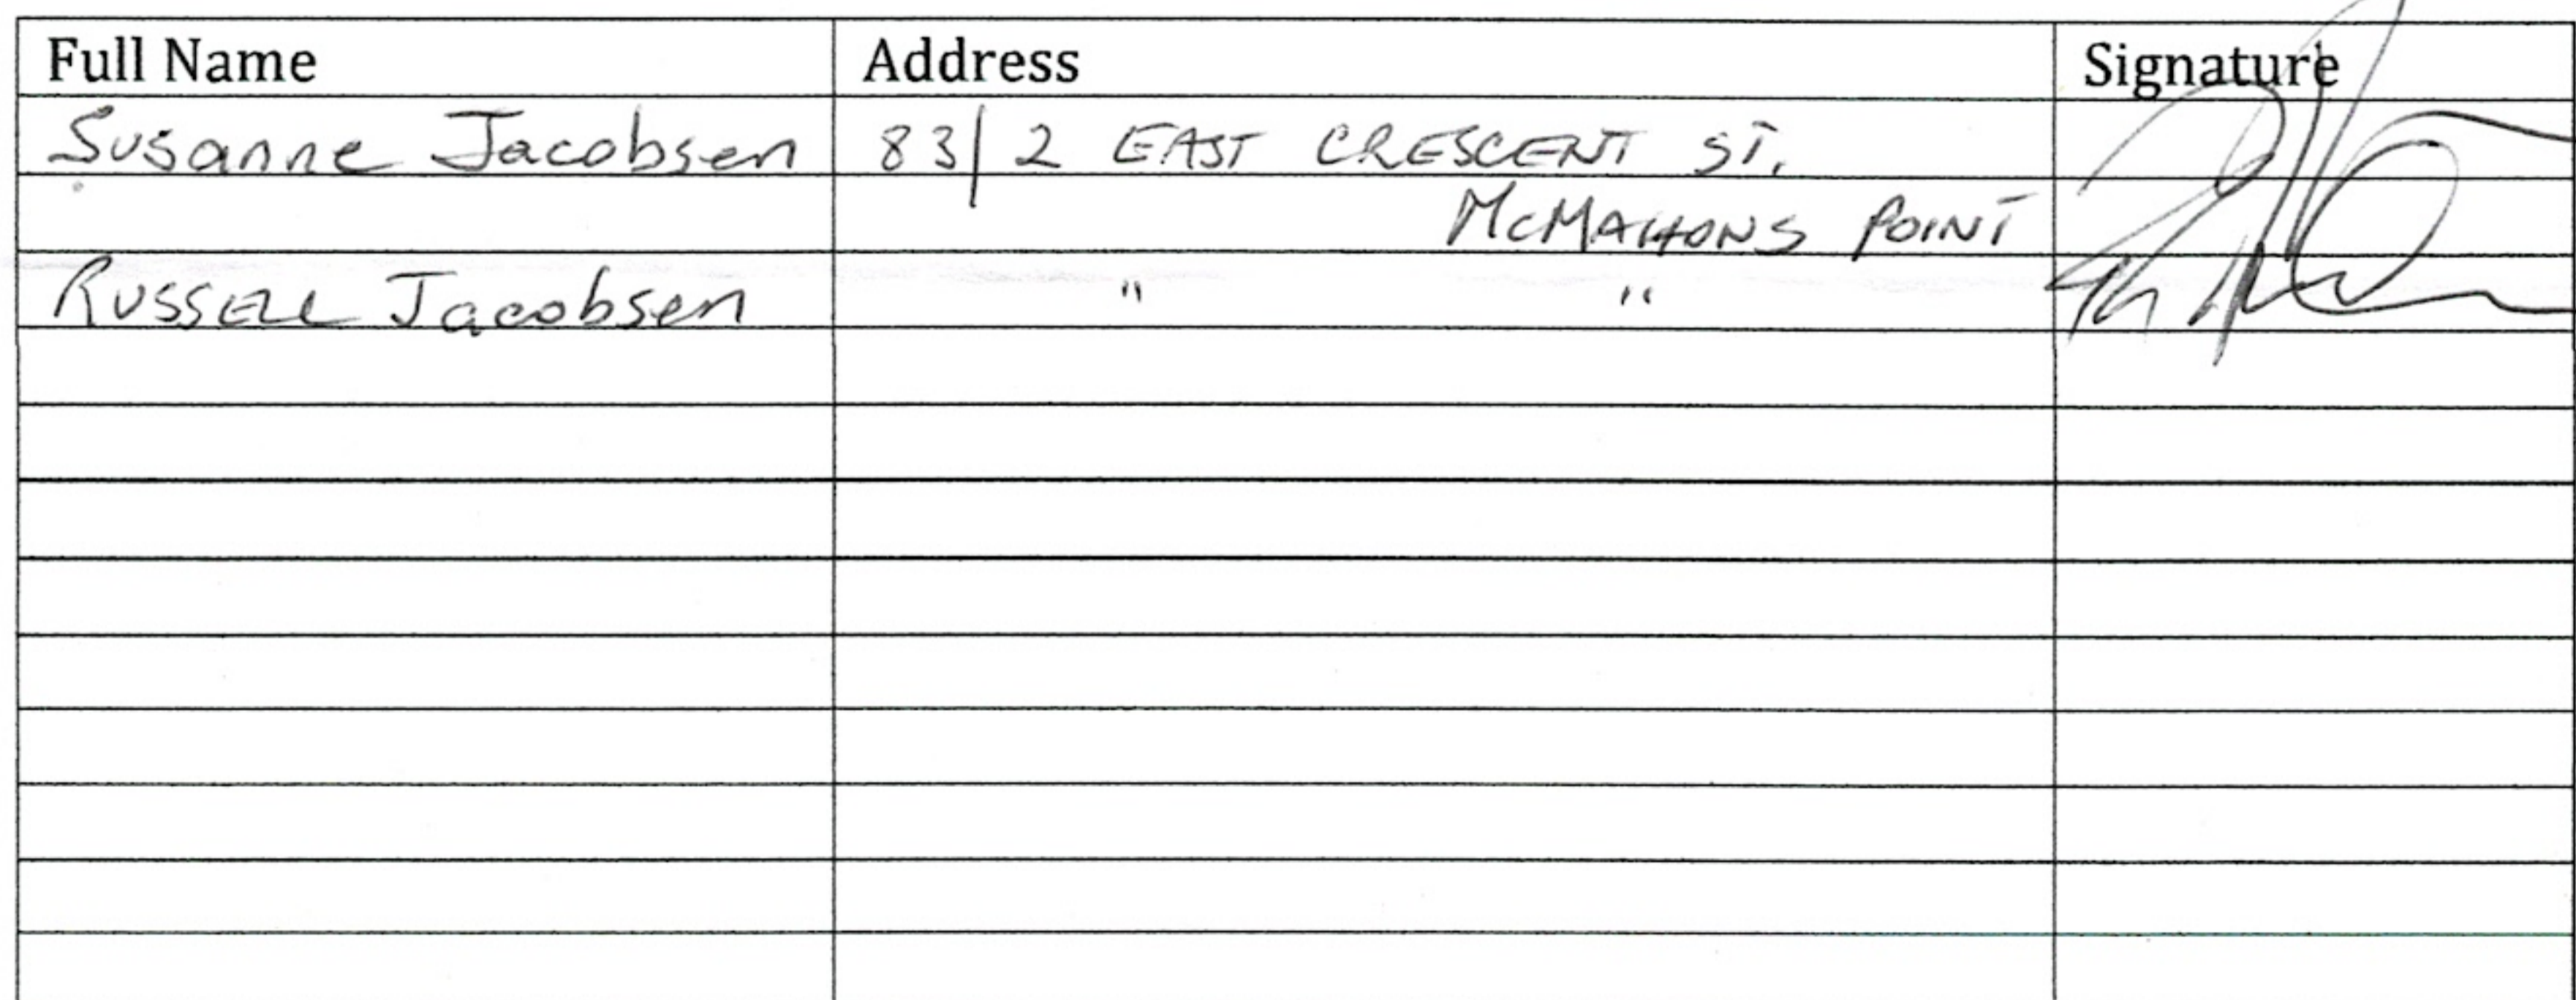 Full Name Address Signature
Susanne Jacobsen 83/2 EAST CRESCENT ST.
McMAHONS POINT
RUSSELL Jacobsen " "